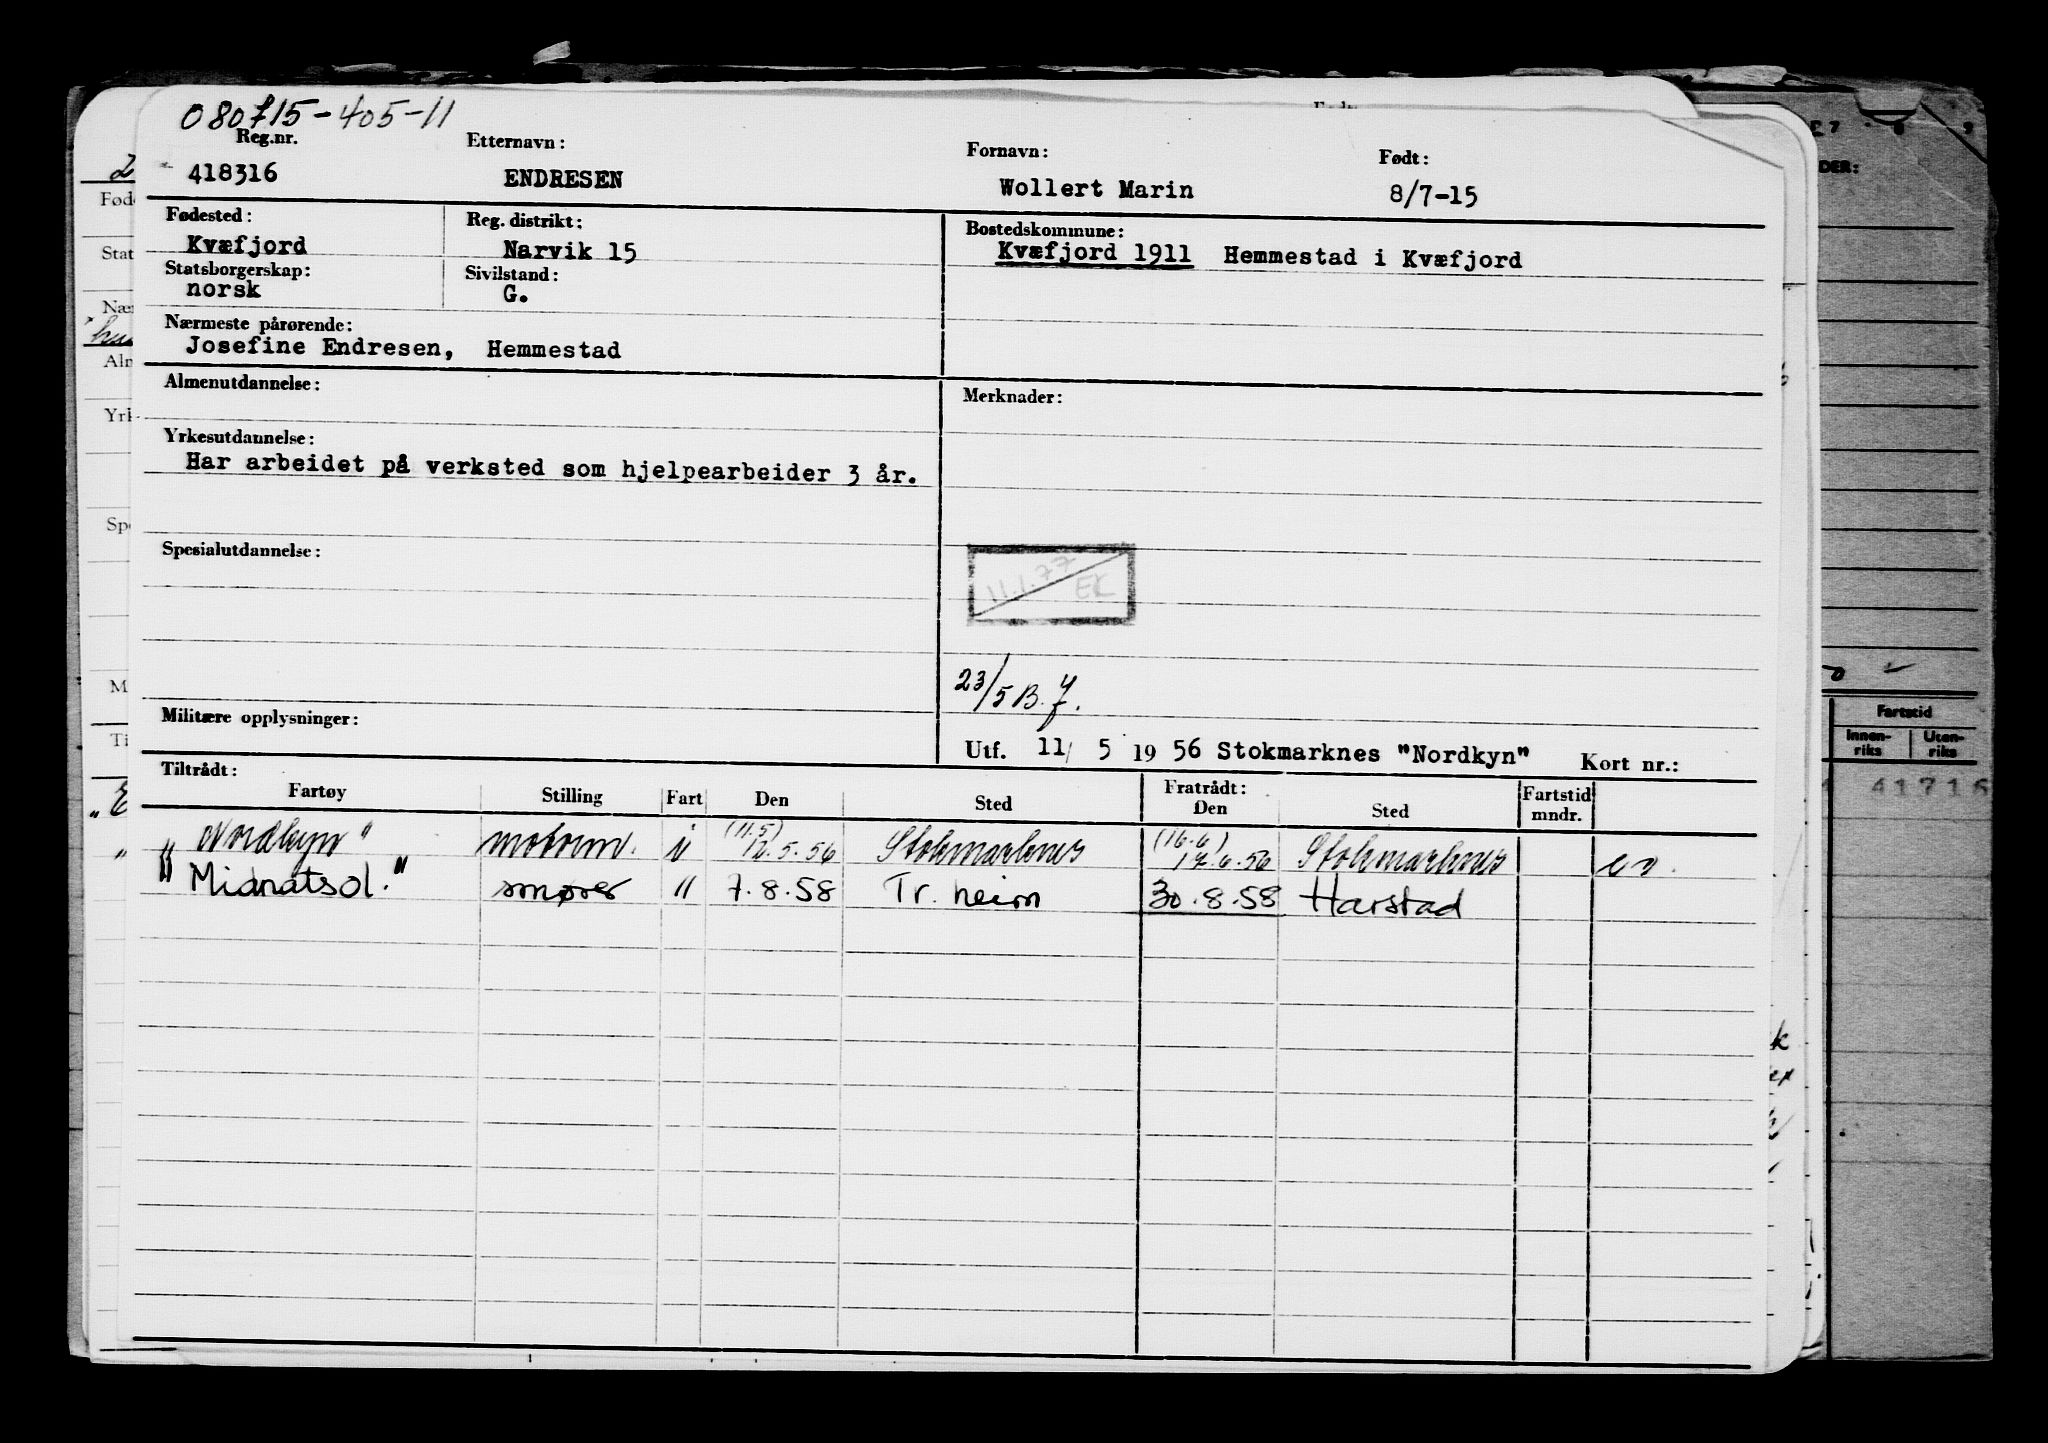 080715-405-11
Reg.nr. Etternavn: Fornavn: Født:
418316 ENDRESEN Wollert Marin 8/7-15
Fødested: Reg. distrikt: Bostedskommune:
Kvæfjord Narvik 15 Kvæfjord 1911 Hemmestad i Kvæfjord
Statsborgerskap: Sivilstand:
norsk G.
Nærmeste pårørende:
Josefine Endresen, Hemmestad
Almenutdannelse: Merknader:
Yrkesutdannelse:
Har arbeidet på verksted som hjelpearbeider 3 år.
Spesialutdannelse:
11.1.77 EK
23/5 B.J.
Militære opplysninger:
Utf. 11/ 5 1956 Stokmarknes "Nordkyn" Kort nr.:
Tiltrådt: Fratrådt:
Fartøy Stilling Fart Den Sted Den Sted Fartstid mndr.
(11.5) (16.6)
"Nordkyn" motorm. i 12.5.56 Stokmarknes 12.6.56 Stokmarknes
"Midnatsol." smører " 7.8.58 Tr.heim 30.8.58 Harstad
DER:
Fartstid
Innen-riks Uten-riks
41716